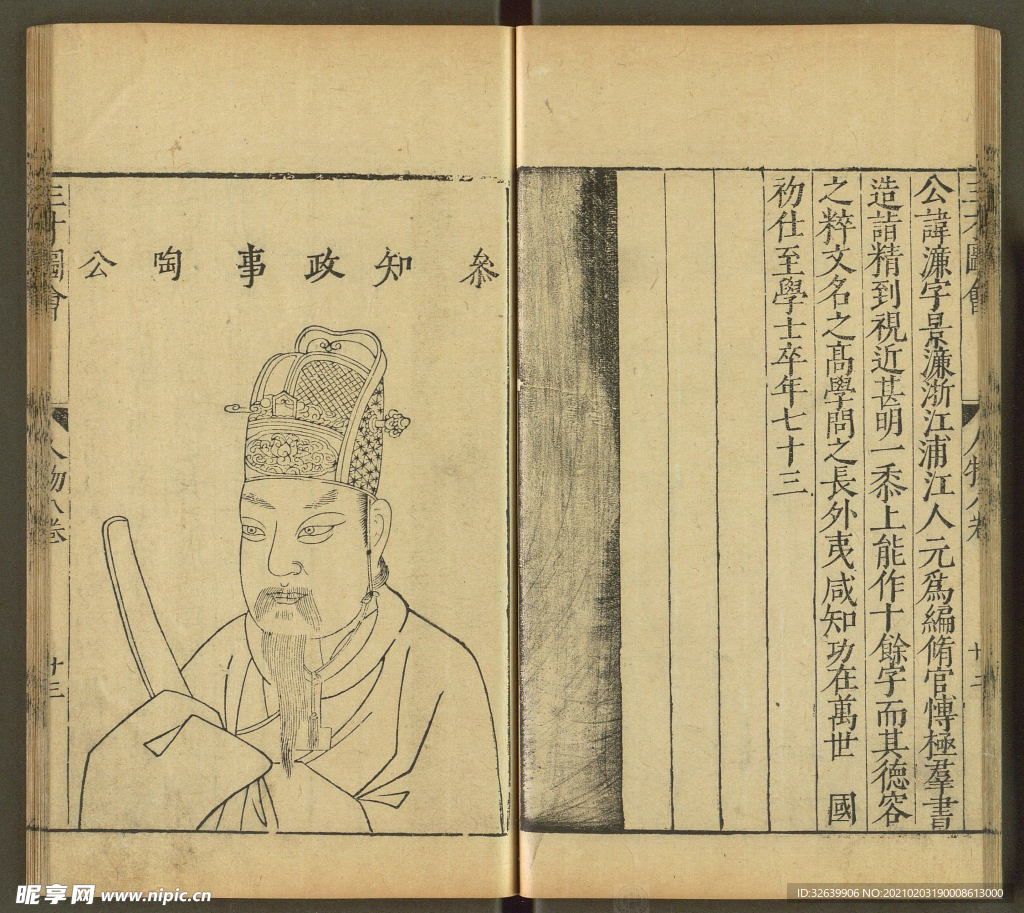 公諱濂字景濂浙江浦江人元爲編脩官愽極羣書
造詣精到視近甚明一黍上能作十餘字而其德容
之粹文名之髙學問之長外夷咸知功在萬世 國
初仕至學士卒年七十三
三才圖會
人物八卷
十二
叅知政事陶公
三才圖會
人物八卷
十三
昵享网 www.nipic.cn
ID:32639906 NO:20210203190008613000